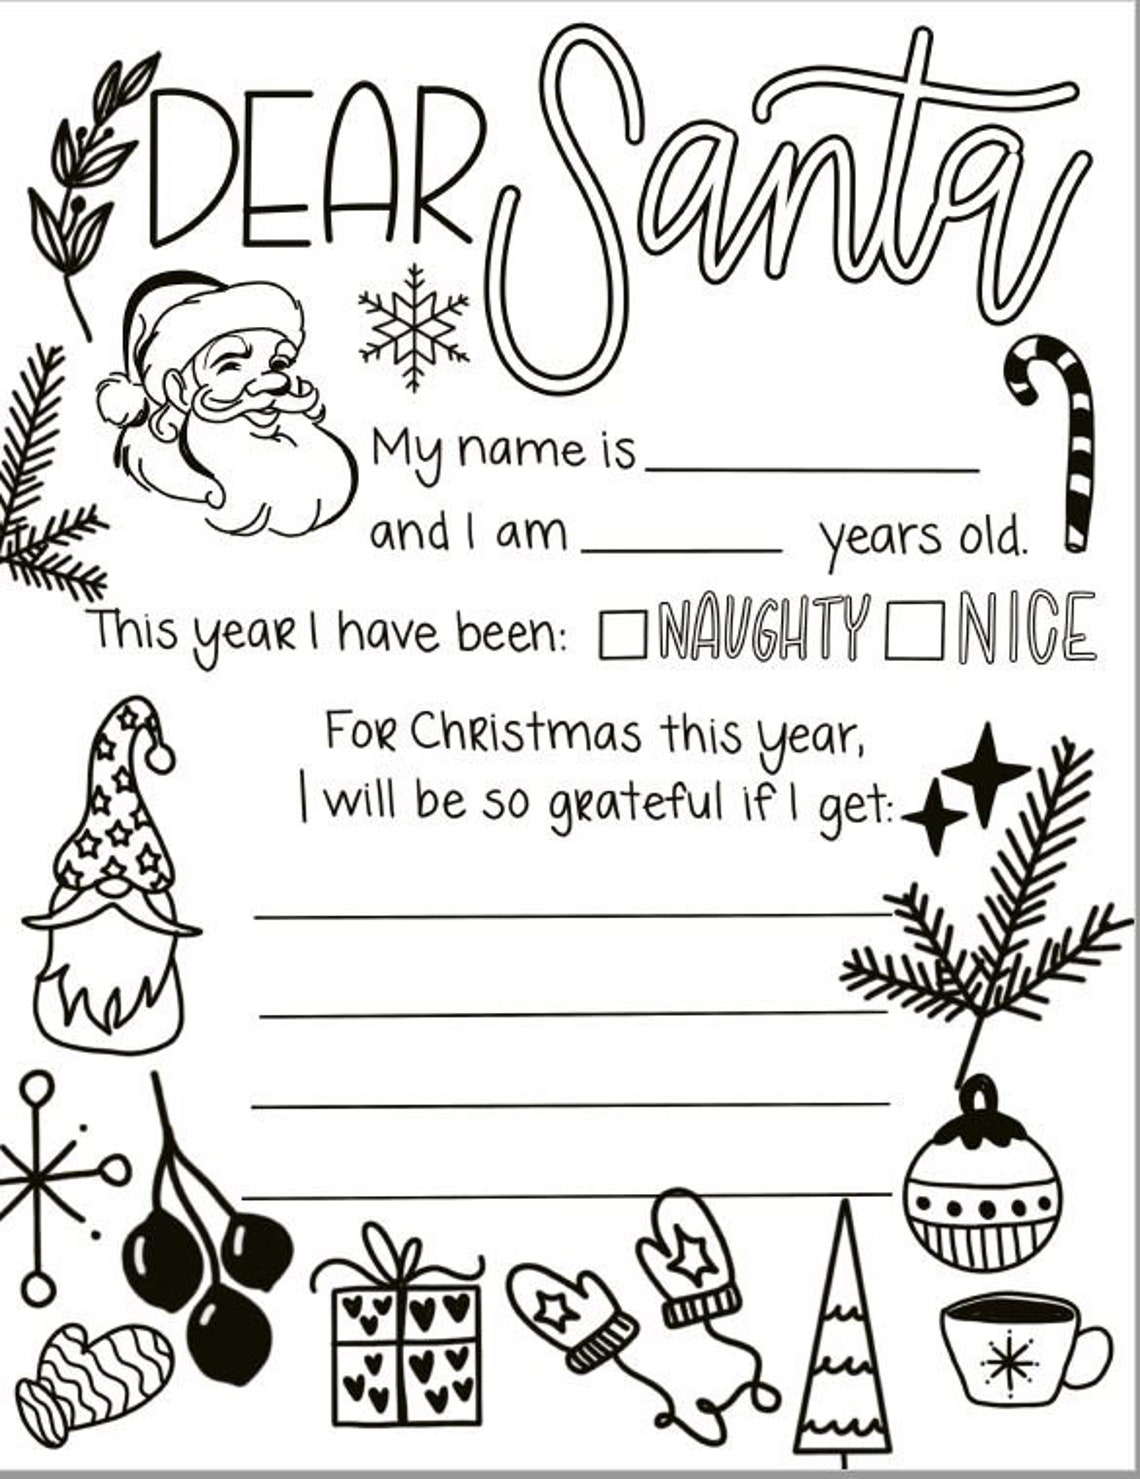 DEAR Santa
My name is
and I am years old.
This year I have been: NAUGHTY NICE
For Christmas this year,
I will be so grateful if I get: